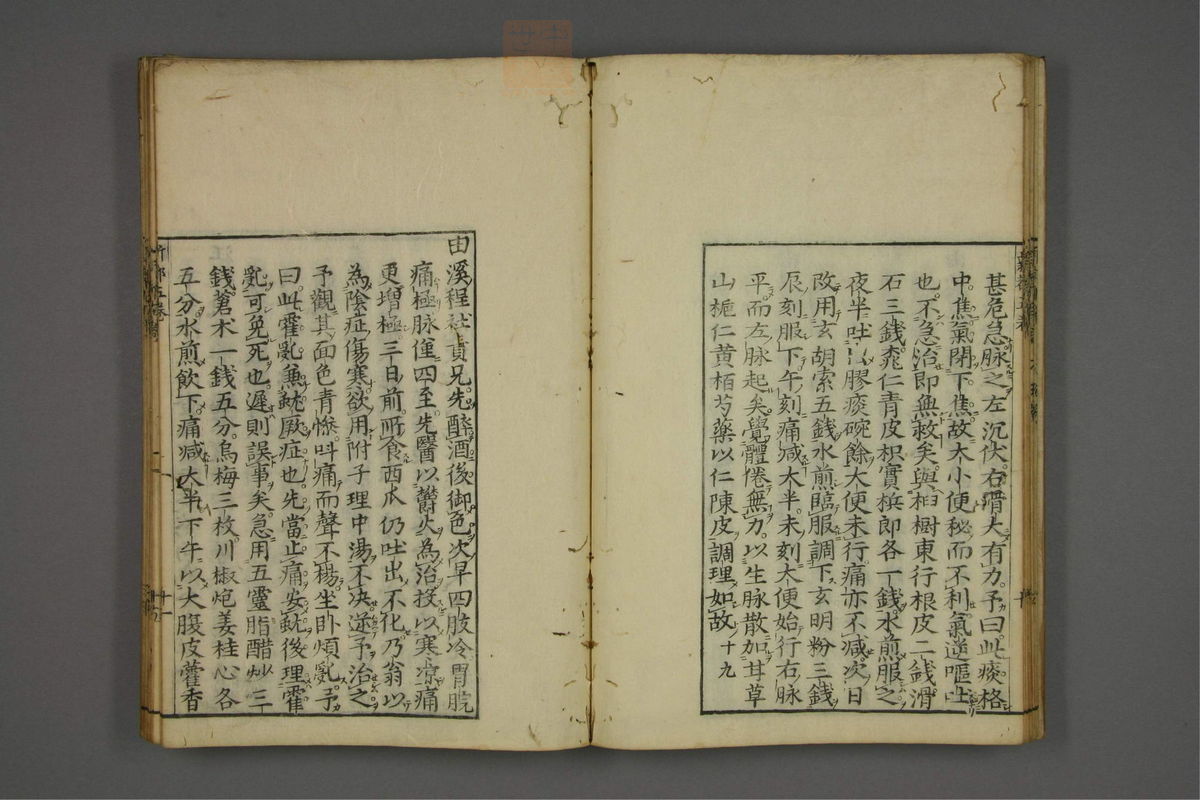 甚危急脉之左沉伏右滑大有力予曰此痰格
中焦氣閉下焦故大小便秘而不利氣逆嘔吐
也不急治即無救矣與栢樹東行根皮二錢滑
石三錢桃仁青皮枳實梹郎各一錢水煎服之
夜半吐出膠痰碗餘大便未行痛亦不减次日
改用玄胡索五錢水煎臨服調下玄明粉三錢
辰刻服下午刻痛减大半未刻大便始行右脉
平而左脉起矣覺體倦無力以生脉散加甘草
山梔仁黄栢芍藥以仁陳皮調理如故十九
由溪程社貢兄先醉酒後御色次早四肢冷胃脘
痛極脉僅四至先醫以欝火為治投以寒凉痛
更增極三日前所食西瓜仍吐出不化乃翁以
為陰症傷寒欲用附子理中湯不决逆予治之
予觀其面色青惨叫痛而聲不楊坐卧煩亂予
曰此霍亂兼蚘厥症也先當止痛安蚘後理霍
亂可免死也遲則誤事矣急用五靈脂醋炒三
錢蒼术一錢五分烏梅三枚川椒炮姜桂心各
五分水煎飲下痛减大半下午以大腹皮藿香